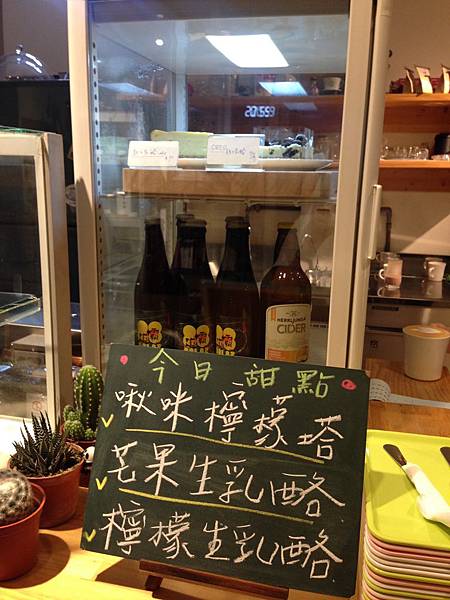 20:559
OREO
HERRLJUNGA
CIDER
今日甜點
啾咪檸檬塔
芒果生乳酪
檸檬生乳酪